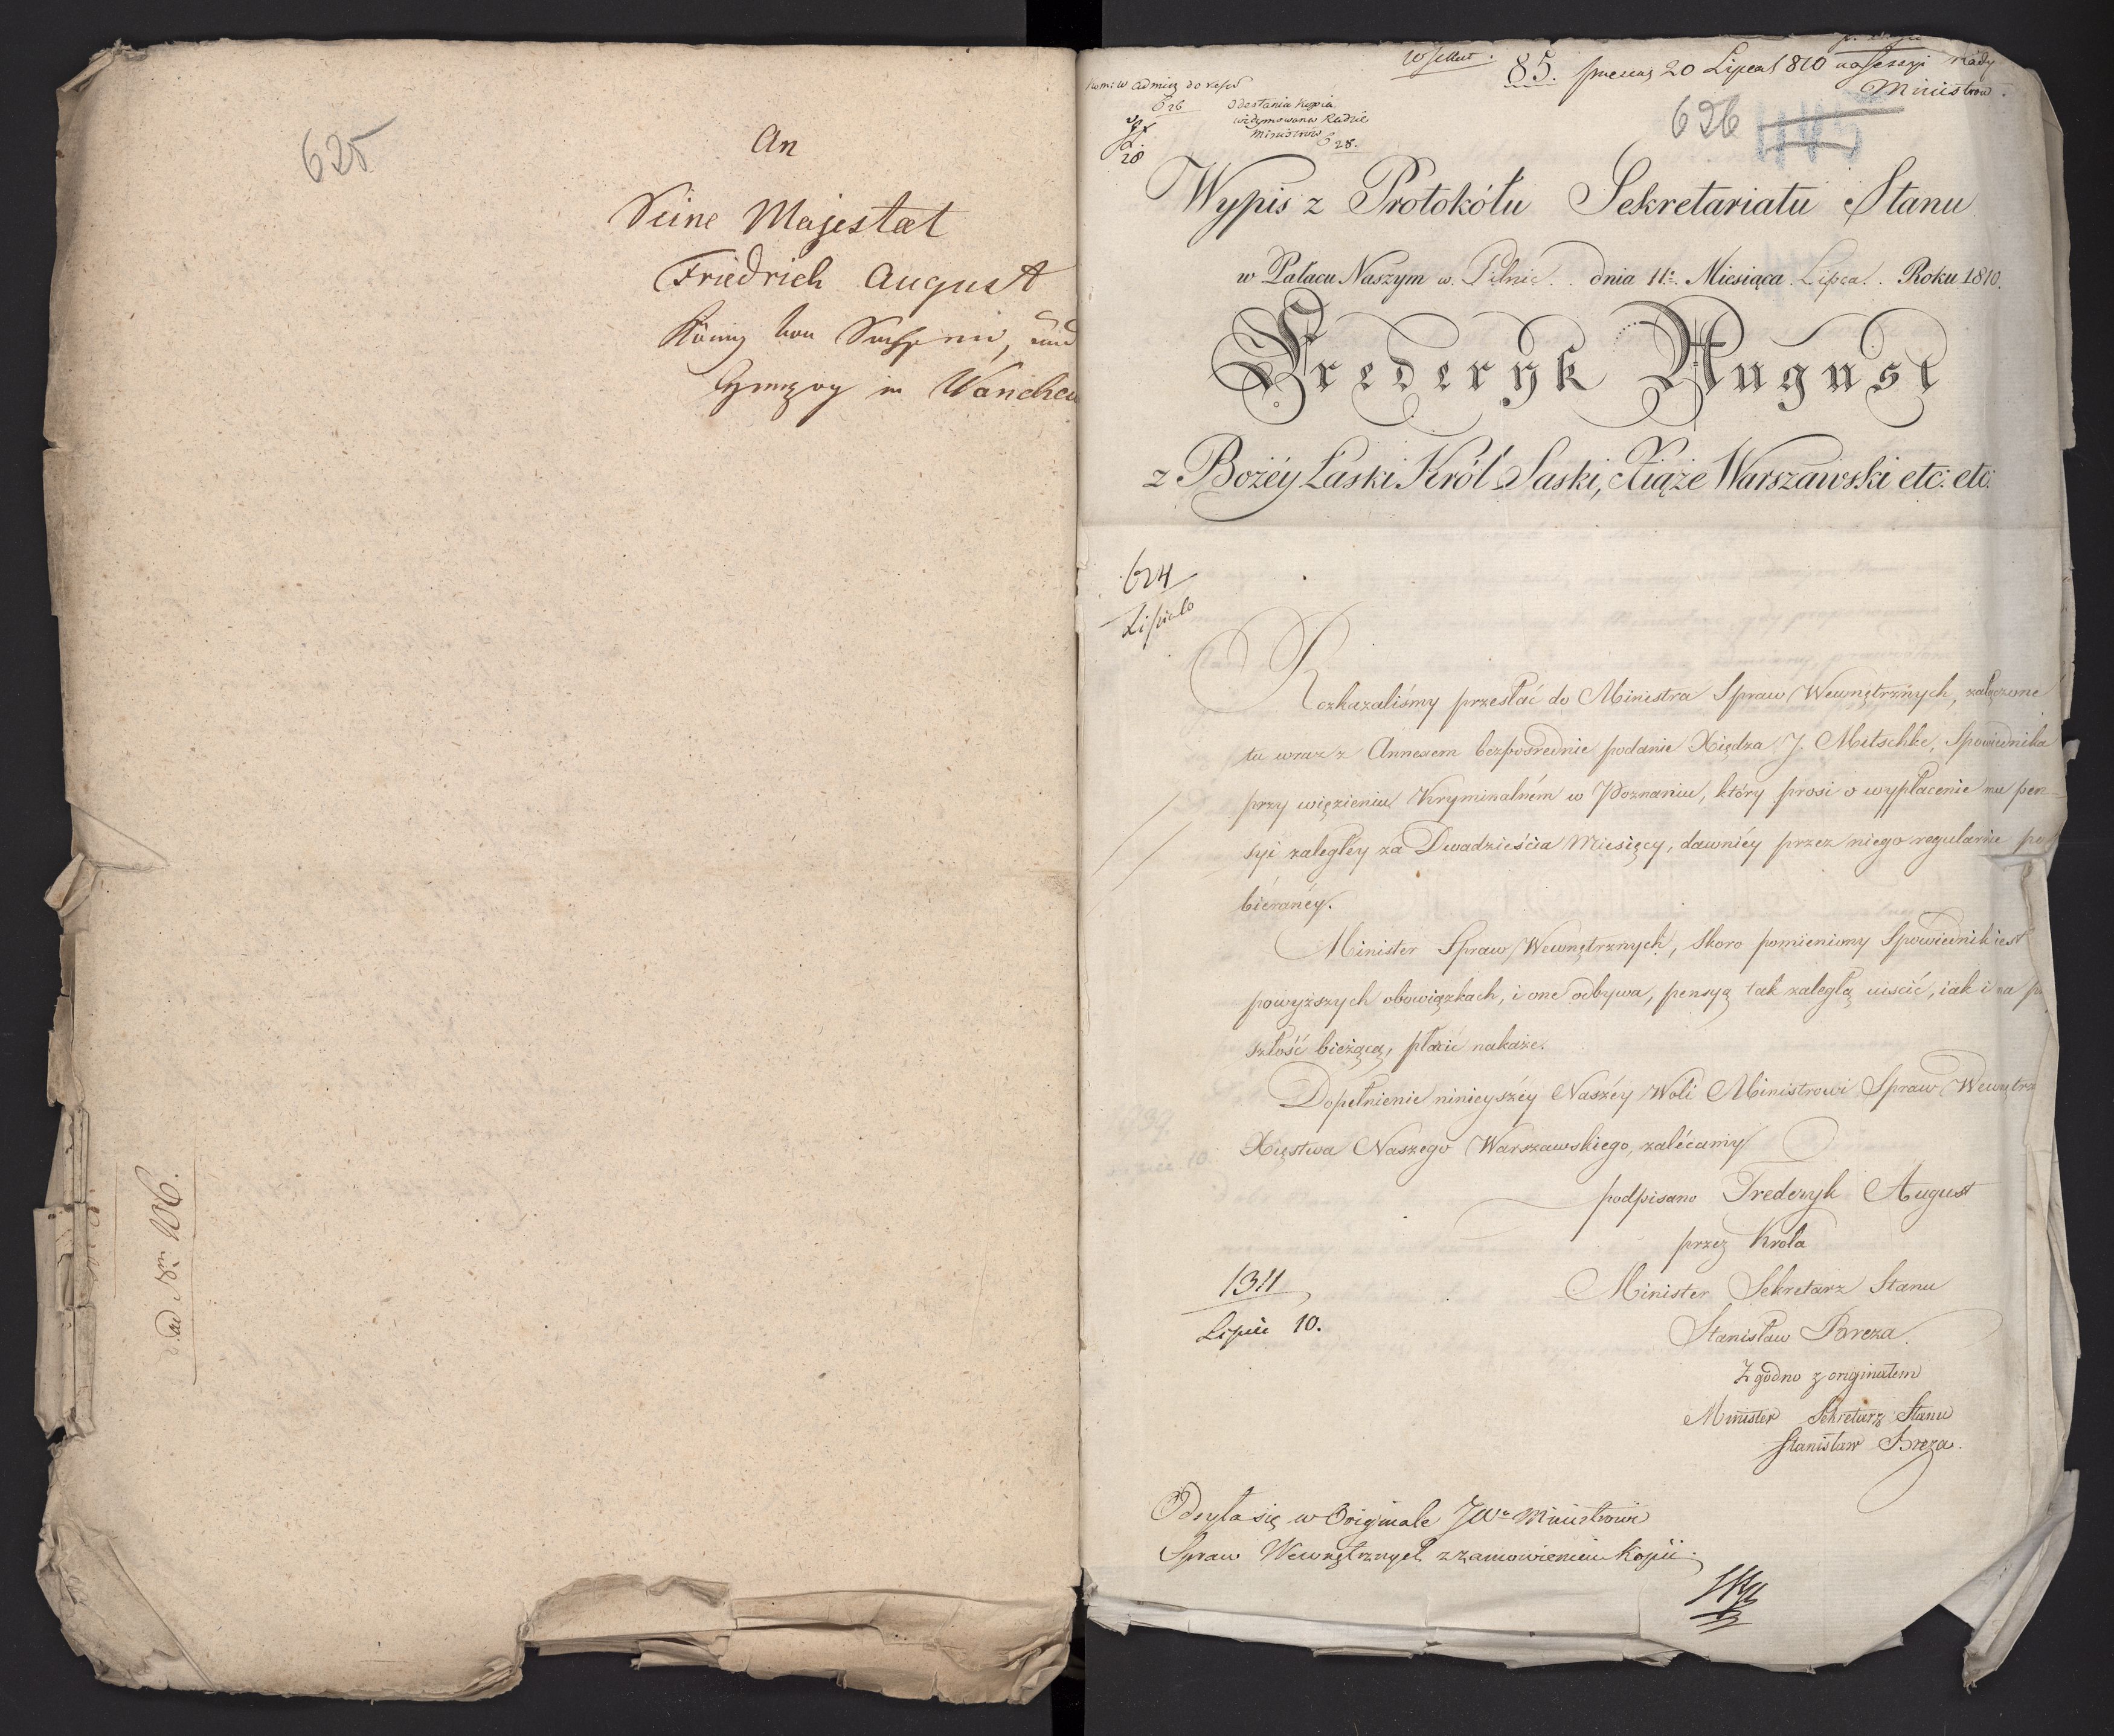 625
An
Seine Majestaet
Friedrich August
König von Sachsen, und
Herzog in Warschau
ad Nr: 106.
85. 20 Lipca 1810 na Sessyi Rady
Ministrow.
626
Odesłania Kopia
Radzie
Ministrów
28.
28
Wypis z Protokółu Sekretariatu Stanu
w Pałacu Naszym w. Pilnic. dnia 11: Miesiąca Lipca. Roku 1810.
Frederyk August
z Bożéy Łaski Król Saski, Xiąże Warszawski etc: etc:
624
Rozkazaliśmy przesłać do Ministra Spraw Wewnętrznych, załączone
tu wraz z Annexem bezpośrednie podanie Xiędza J. Mitschke, Spowiednika
przy więzieniu Kryminalném w Poznaniu, który prosi o wypłacenie mu pen
syi zaległéy za Dwadzieścia Miesięcy, dawniéy przez niego regularnie po
bieranéy.
Minister Spraw Wewnętrznych, skoro pomieniony Spowiednik iest
powyższych obowiązkach, i one odbywa, pensyą tak zaległą uiścić, iak i na p
szłość bieżącą, płacić nakaże.
Dopełnienie ninieyszéy Naszéy Woli Ministrowi Spraw Wewnętrz
Xięstwa Naszego Warszawskiego, zalécamy
podpisano Frederyk August
przez Krola
1311
Minister Sekretarz Stanu
Lipiec 10.
Stanisław Breza.
Zgodno z originałem
Minister Sekretarz Stanu
Stanisław Breza.
Odsyła się w Originale JW: Ministrowi
Spraw Wewnętrznych z zamowieniem Kopii.